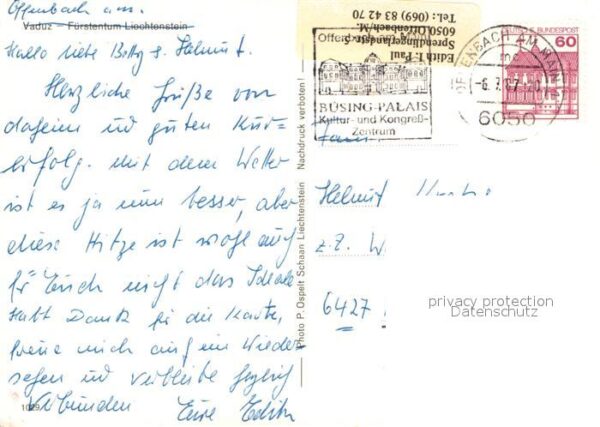 Offenbach a.m.
Vaduz - Fürstentum Liechtenstein
Hallo liebe Betty & Helmut.
Herzliche Grüße von
daheim und guten Kur-
erfolg. Mit dem Wetter
ist es ja nun besser, aber
diese Hitze ist wohl auch
für Euch nicht das Ideale
Habt Dank für die Karte,
freue mich auf ein Wieder-
sehen und verbleibe
verbunden Eure Edith
1029
Photo P. Ospelt Schaan Liechtenstein Nachdruck verboten!
Edith I. Paul
Sprendlinger Landstr. 5
6050 Offenbach/M.
Tel.: (069) 83 42 70
Offenbach am
BÜSING-PALAIS
Kultur- und Kongreß-
Zentrum
OFFENBACH AM MAIN
mc
6050
BUNDESPOST
60
Helmut
z. Z. W
6427
privacy protection
Datenschutz